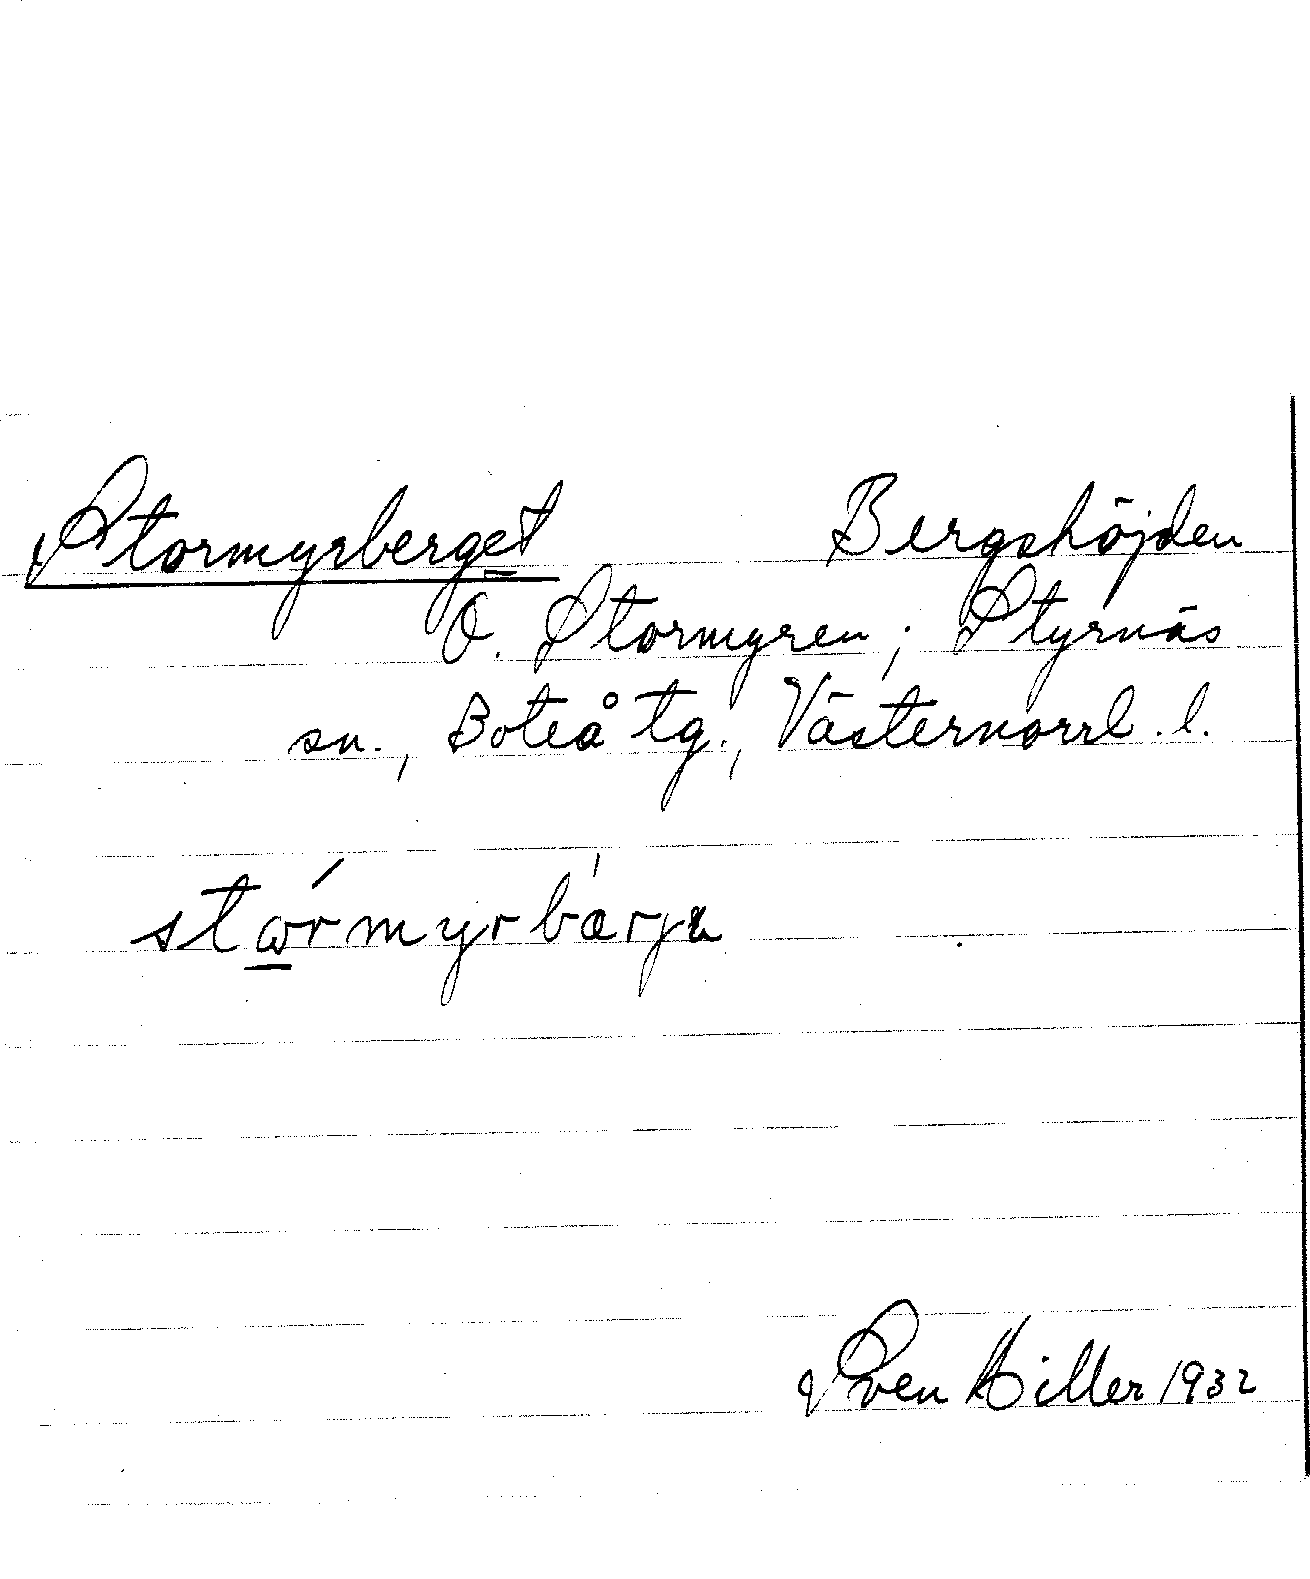 Stormyrberget Bergshöjden
Ö. Stormyren; Styrnäs
sn., Boteå tg., Västernorrl. l.
Sven Hiller 1932